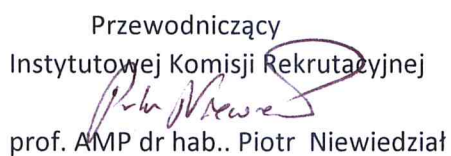 Przewodniczący
Instytutowej Komisji Rekrutacyjnej
prof. AMP dr hab.. Piotr Niewiedział